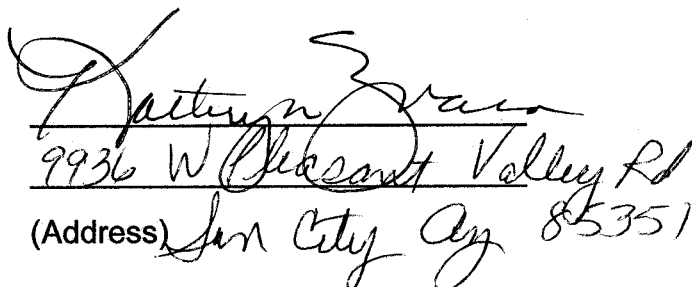 Kathryn Evans
9936 W Pleasant Valley Rd
(Address) Sun City Az 85351